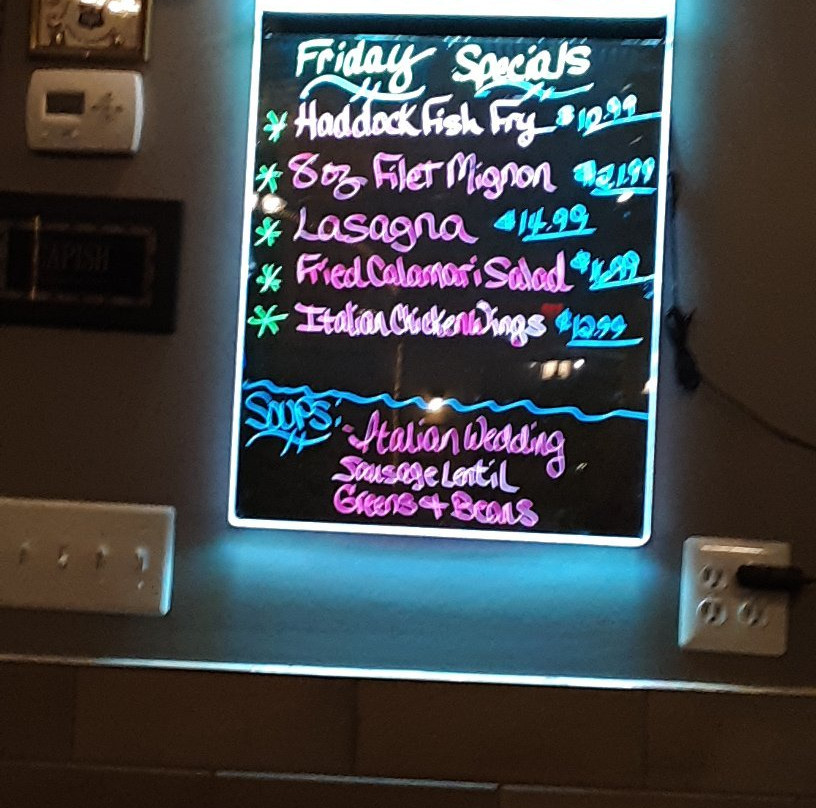 Friday Specials
* Haddock Fish Fry $10.99
* 8oz Filet Mignon $21.99
* Lasagna $14.99
* Fried Calamari Salad
* Italian Chicken Wings $12.99
Soups: Italian Wedding
Sausage Lentil
Greens + Beans